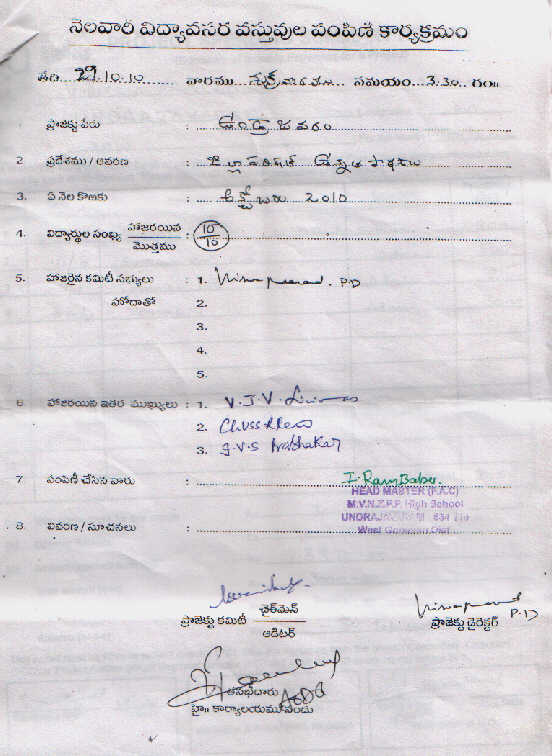 నెలవారీ విద్యావసర వస్తువుల పంపిణీ కార్యక్రమం
తేది... 29.10.10 వారము... శుక్రవారము... సమయం... 3.30.. గం॥
ప్రాజెక్టు పేరు : ఉండ్రాజవరం
2 ప్రదేశము / ఆవరణ : జిల్లా పరిషత్ ఉన్నత పాఠశాల
3. ఏ నెల కొఱకు : అక్టోబరు 2010
4. విద్యార్థుల సంఖ్య హాజరయిన / మొత్తము : 10/15
5. హాజరైన కమిటీ సభ్యులు : 1. P.D
హోదాతో 2.
3.
4.
5.
6. హాజరయిన ఇతర ముఖ్యులు : 1. V.J.V.
2.
3. G.V.S Prabhakar
7 పంపిణీ చేసిన వారు : I. Ram Babu.
HEAD MASTER (F.A.C)
M.V.N.Z.P.P. High School
UNDRAJAVARAM 534 210
West Godavari Dist
8. వివరణ / సూచనలు :
ప్రాజెక్టు కమిటీ ఛైర్‌మెన్ / ఆడిటర్
ప్రాజెక్టు డైరెక్టర్ P.D
ఆసభీదారు
హై॥ కార్యాలయము నందు